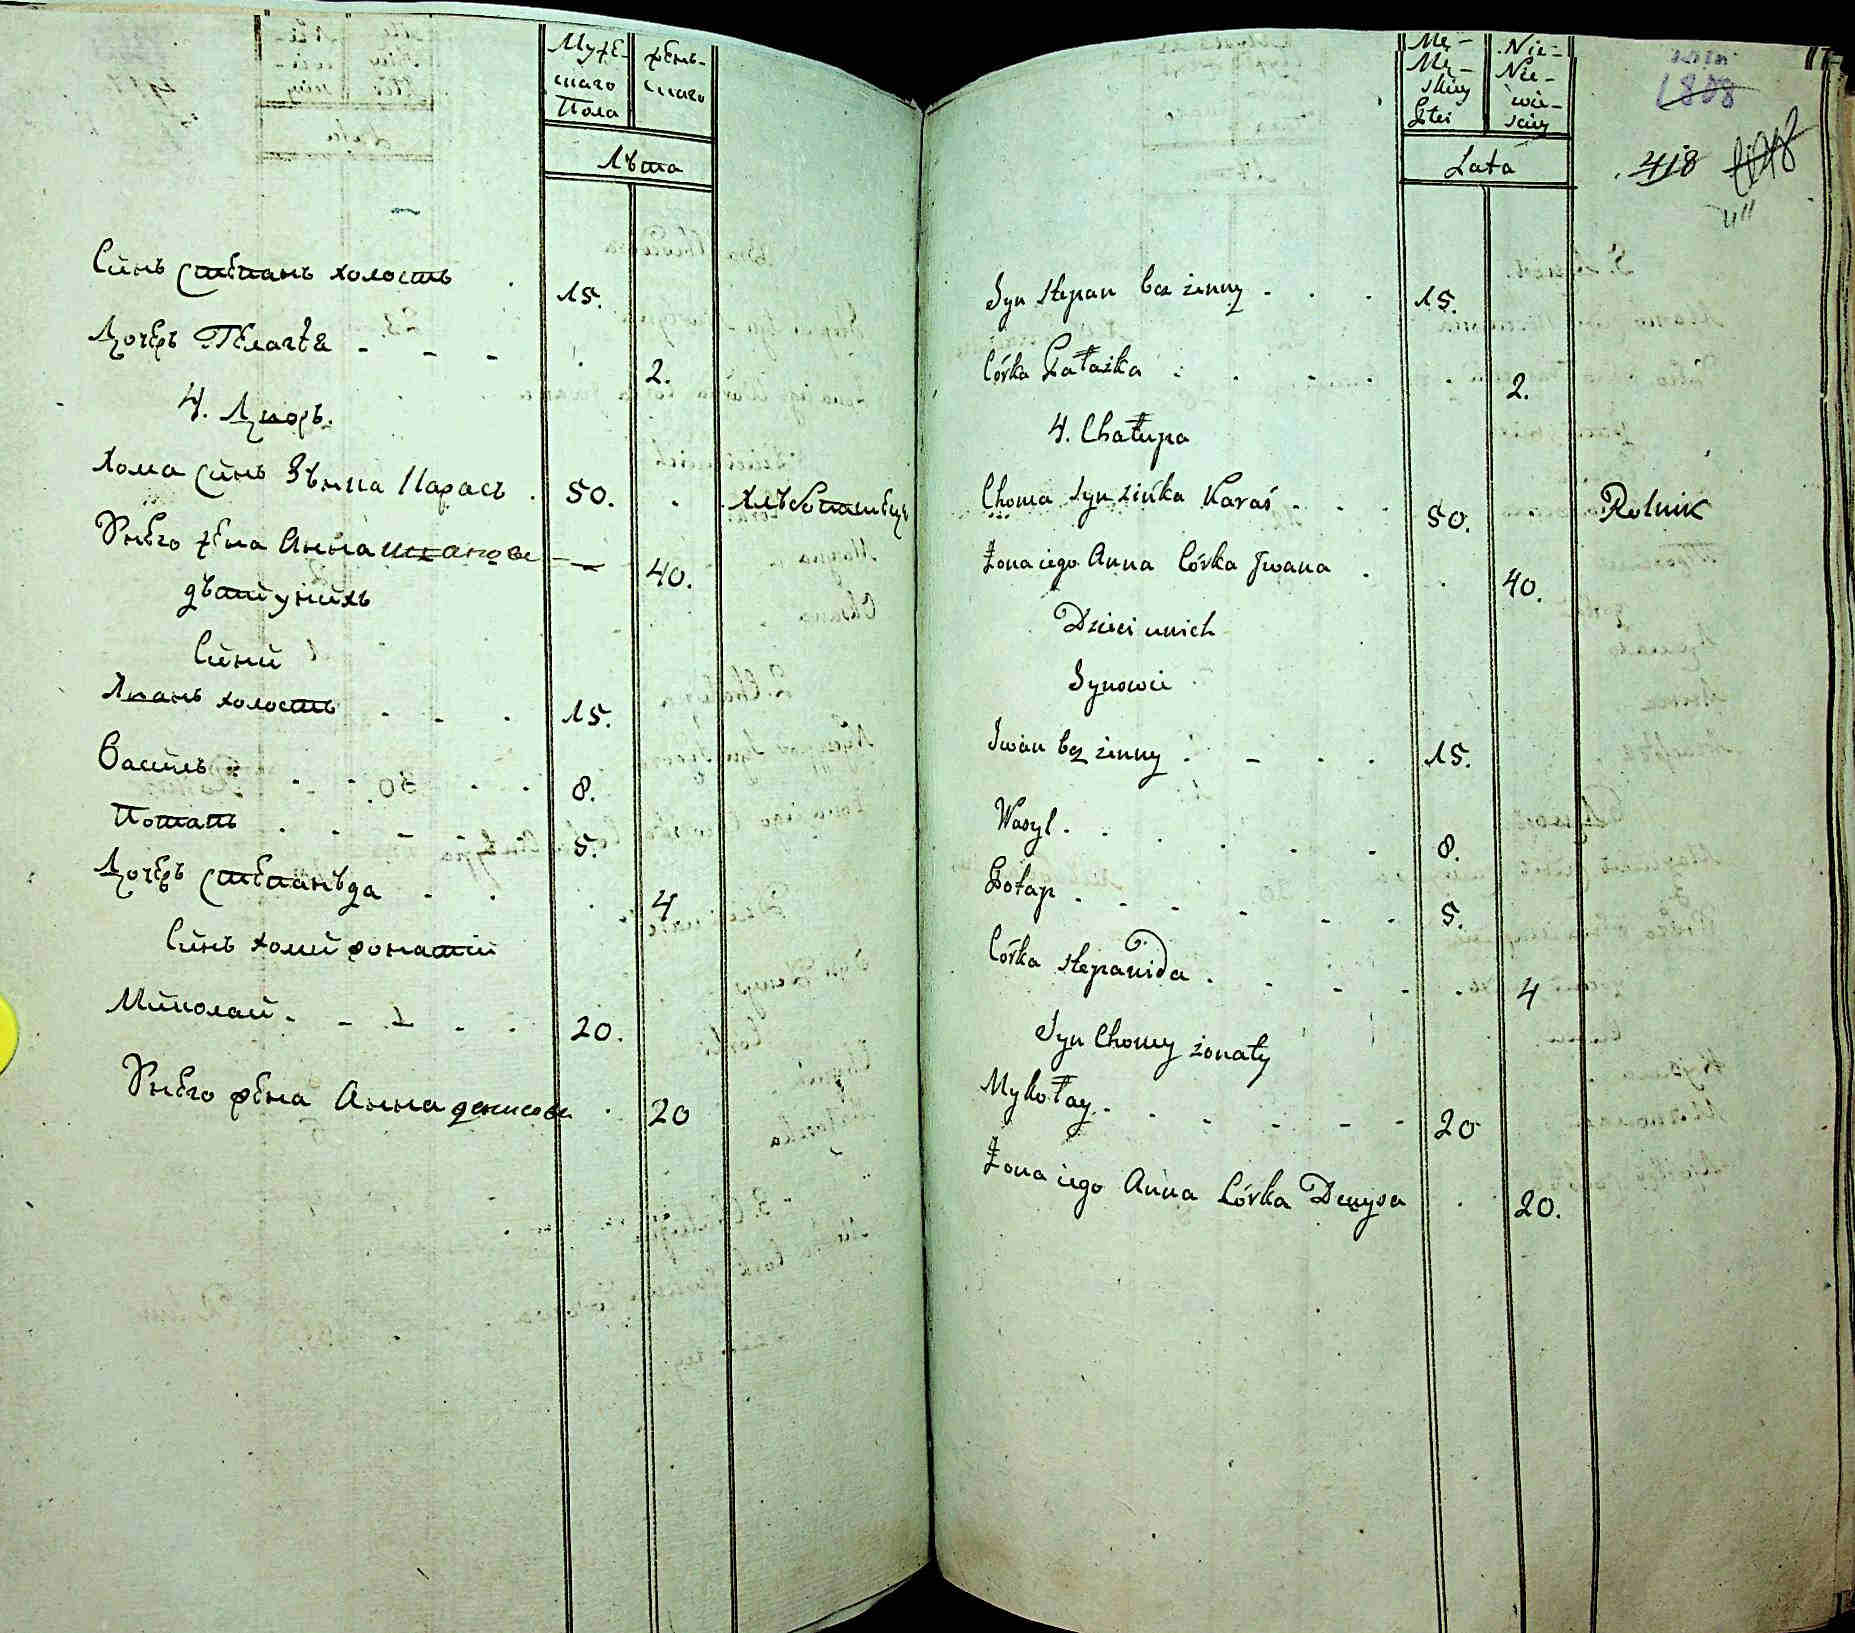 Мужескаго Пола
женскаго
Лѣта
Синъ Степанъ холостъ 15.
Дочерь Пелагѣя 2.
4. Дворъ.
Хома Синъ Зѣнка Карась 50. Хлѣбопашецъ
У него жена Анна Иванова 40.
дѣти у нихъ
Сини
Иванъ холостъ 15.
Василь 8.
Потапъ 5.
Дочерь Степанѣда 4
Синъ Хоми жонатій
Миколай 20.
У него жена Анна денисова 20
Mę-
Mę-
skiey
Płci
Nie-
Nie-
wie-
sciey
Lata
418
Syn Stepan bez żenny 15.
Córka Pałażka 2.
4. Chałupa
Choma Syn Zińka Karaś 50. Rolnik
Żona iego Anna Córka Jwana 40.
Dzieci unich
Synowie
Jwan bez żenny 15.
Wasyl 8.
Potap 5.
Córka Stepanida 4
Syn Chomy żonaty
Mykołay 20
Żona iego Anna Córka Denysa 20.